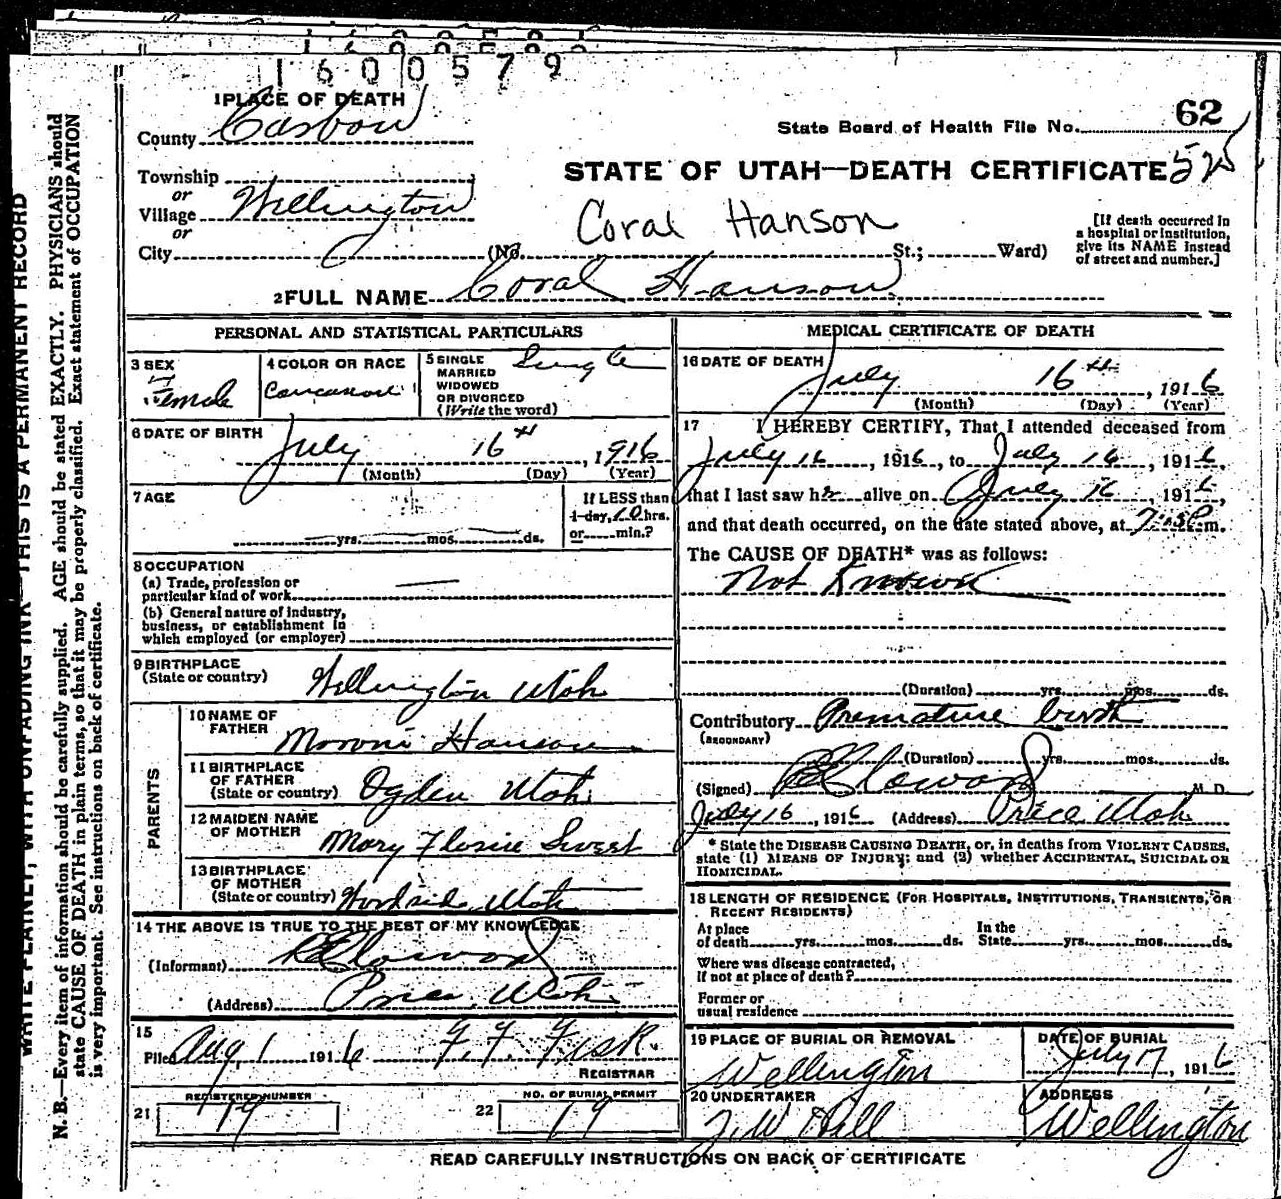 1600579
1 PLACE OF DEATH
County Carbon
State Board of Health File No. 62
Township
STATE OF UTAH—DEATH CERTIFICATE 525
or
Village Wellington
or
Coral Hanson
[If death occurred in a hospital or institution, give its NAME instead of street and number.]
City (No. St.; Ward)
2 FULL NAME Coral Hanson
PERSONAL AND STATISTICAL PARTICULARS
3 SEX
Female
4 COLOR OR RACE
5 SINGLE
MARRIED
WIDOWED
OR DIVORCED
(Write the word)
Single
6 DATE OF BIRTH
July 16th, 1916
(Month) (Day) (Year)
7 AGE
yrs. mos. ds.
If LESS than
1 day, 10 hrs.
or min.?
8 OCCUPATION
(a) Trade, profession or
particular kind of work
(b) General nature of industry,
business, or establishment in
which employed (or employer)
9 BIRTHPLACE
(State or country)
Wellington Utah
PARENTS
10 NAME OF
FATHER
Moroni Hanson
11 BIRTHPLACE
OF FATHER
(State or country)
Ogden Utah
12 MAIDEN NAME
OF MOTHER
Mary Sweet
13 BIRTHPLACE
OF MOTHER
(State or country) Utah
14 THE ABOVE IS TRUE TO THE BEST OF MY KNOWLEDGE
(Informant)
(Address) Price, Utah
15
Filed Aug 1 1916 F. F. Fisk.
REGISTRAR
REGISTERED NUMBER
21 19
NO. OF BURIAL PERMIT
22 19
MEDICAL CERTIFICATE OF DEATH
16 DATE OF DEATH
July 16th, 1916
(Month) (Day) (Year)
17 I HEREBY CERTIFY, That I attended deceased from
July 16, 1916, to July 16, 1916,
that I last saw h alive on July 16, 1916,
and that death occurred, on the date stated above, at m.
The CAUSE OF DEATH* was as follows:
Not Known
(Duration) yrs. mos. ds.
Contributory Premature birth
(SECONDARY)
(Duration) yrs. mos. ds.
(Signed) M. D.
July 16, 1916 (Address) Price Utah
* State the DISEASE CAUSING DEATH, or, in deaths from VIOLENT CAUSES,
state (1) MEANS OF INJURY; and (2) whether ACCIDENTAL, SUICIDAL OR
HOMICIDAL.
18 LENGTH OF RESIDENCE (FOR HOSPITALS, INSTITUTIONS, TRANSIENTS, OR
RECENT RESIDENTS)
At place In the
of death yrs. mos. ds. State yrs. mos. ds.
Where was disease contracted,
if not at place of death?
Former or
usual residence
19 PLACE OF BURIAL OR REMOVAL
Wellington
DATE OF BURIAL
July 17, 1916
20 UNDERTAKER
J. W. Hill
ADDRESS
Wellington
READ CAREFULLY INSTRUCTIONS ON BACK OF CERTIFICATE
WRITE PLAINLY, WITH UNFADING INK—THIS IS A PERMANENT RECORD
N. B.—Every item of information should be carefully supplied. AGE should be stated EXACTLY. PHYSICIANS should
state CAUSE OF DEATH in plain terms, so that it may be properly classified. Exact statement of OCCUPATION
is very important. See instructions on back of certificate.